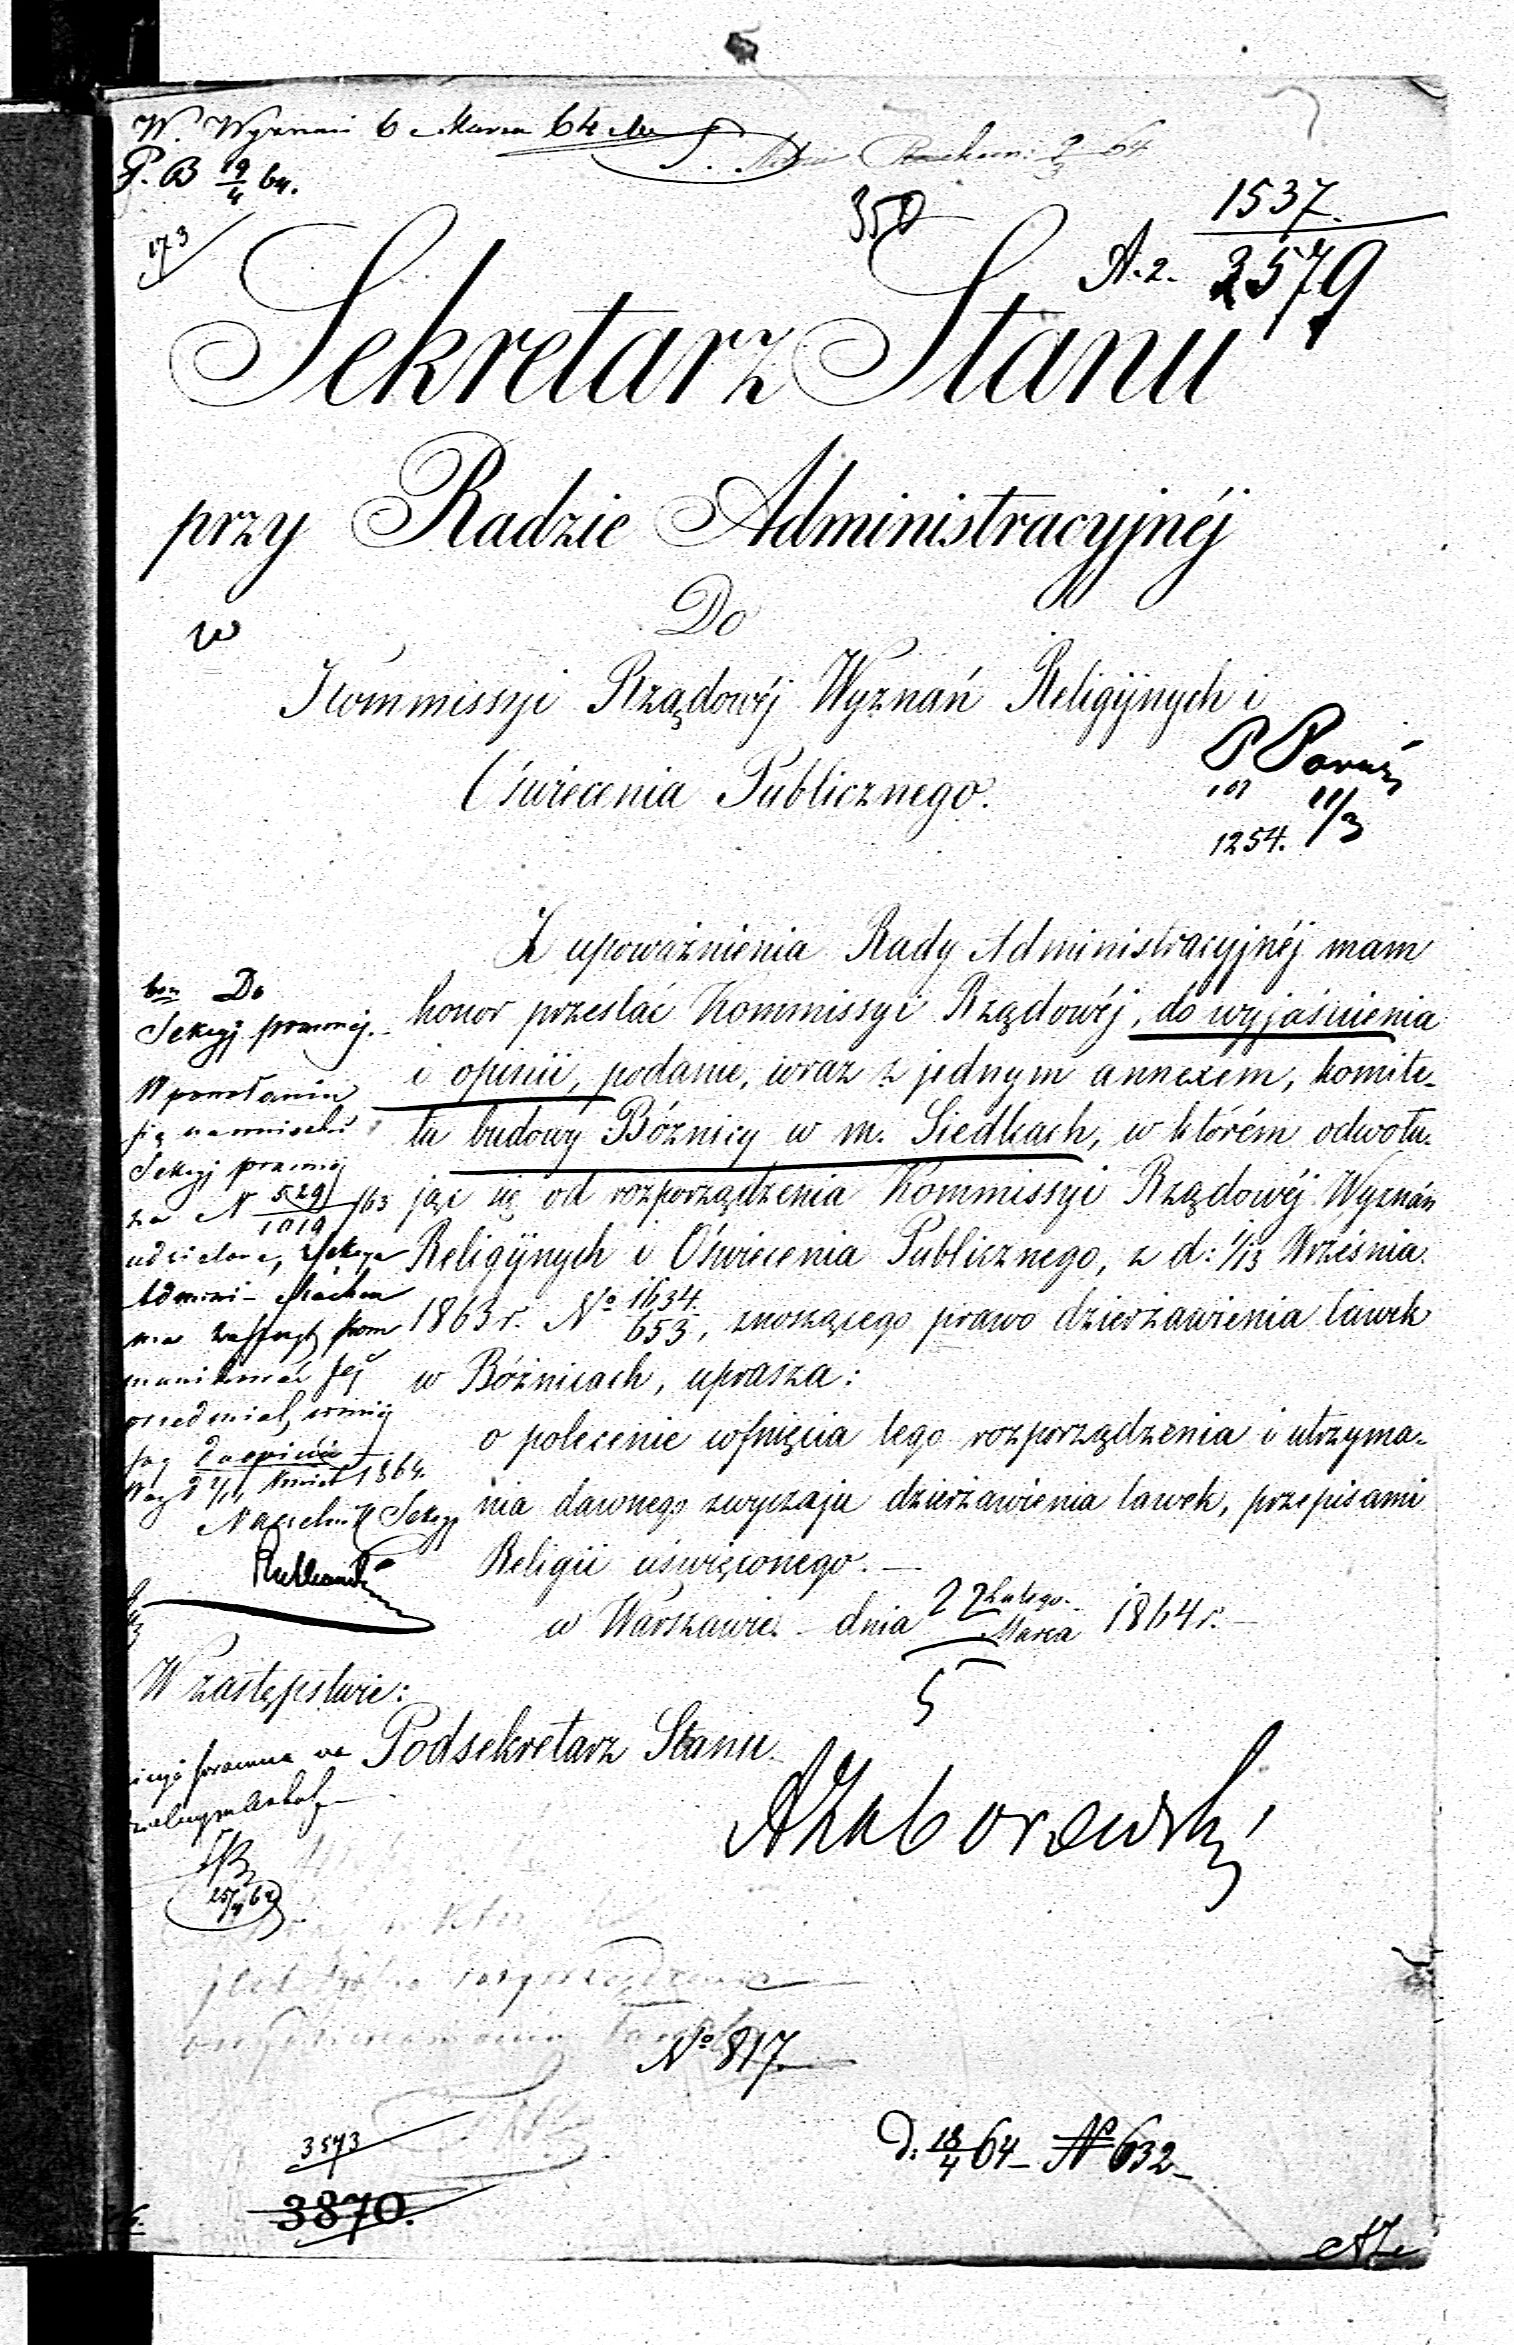 W. Wyznań 6 Marca 64
P. B 19/4 64.
173
9/3 64
350
1537.
A. 2. 2579
Sekretarz Stanu
przy Radzie Administracyjnéj
w
Do
Kommissyi Rządowéj Wyznań Religijnych i
Oświecenia Publicznego.
11/3
1254.
Z upoważnienia Rady Administracyjnéj mam
honor przesłać Kommissyi Rządowéj, do wyjaśnienia
i opinii, podanie, wraz z jednym annexem, komite-
tu budowy Bóżnicy w m. Siedlcach, w którém odwołu-
jąc się od rozporządzenia Kommissyi Rządowéj Wyznań
Religijnych i Oświecenia Publicznego, z d: 1/13 Września
1863 r. No 1634/653, znoszącego prawo dzierżawienia ławek
w Bóżnicach, uprasza:
o polecenie cofnięcia tego rozporządzenia i utrzyma-
nia dawnego zwyczaju dzierżawienia ławek, przepisami
Religii uświęconego. —
w Warszawie dnia 22 Lutego / 5 Marca 1864 r. —
Do
Sekcyj prawnéj.
W powołaniu
się na wnioski
Sekcyj prawnéj
za N 529/1019 /63
udzielone, Sekcya
1864.
Naczelnik Sekcyi
W zastępstwie:
Podsekretarz Stanu
AZaborowski
No 817
3573
3870.
d. 18/4 64 — No 632 —